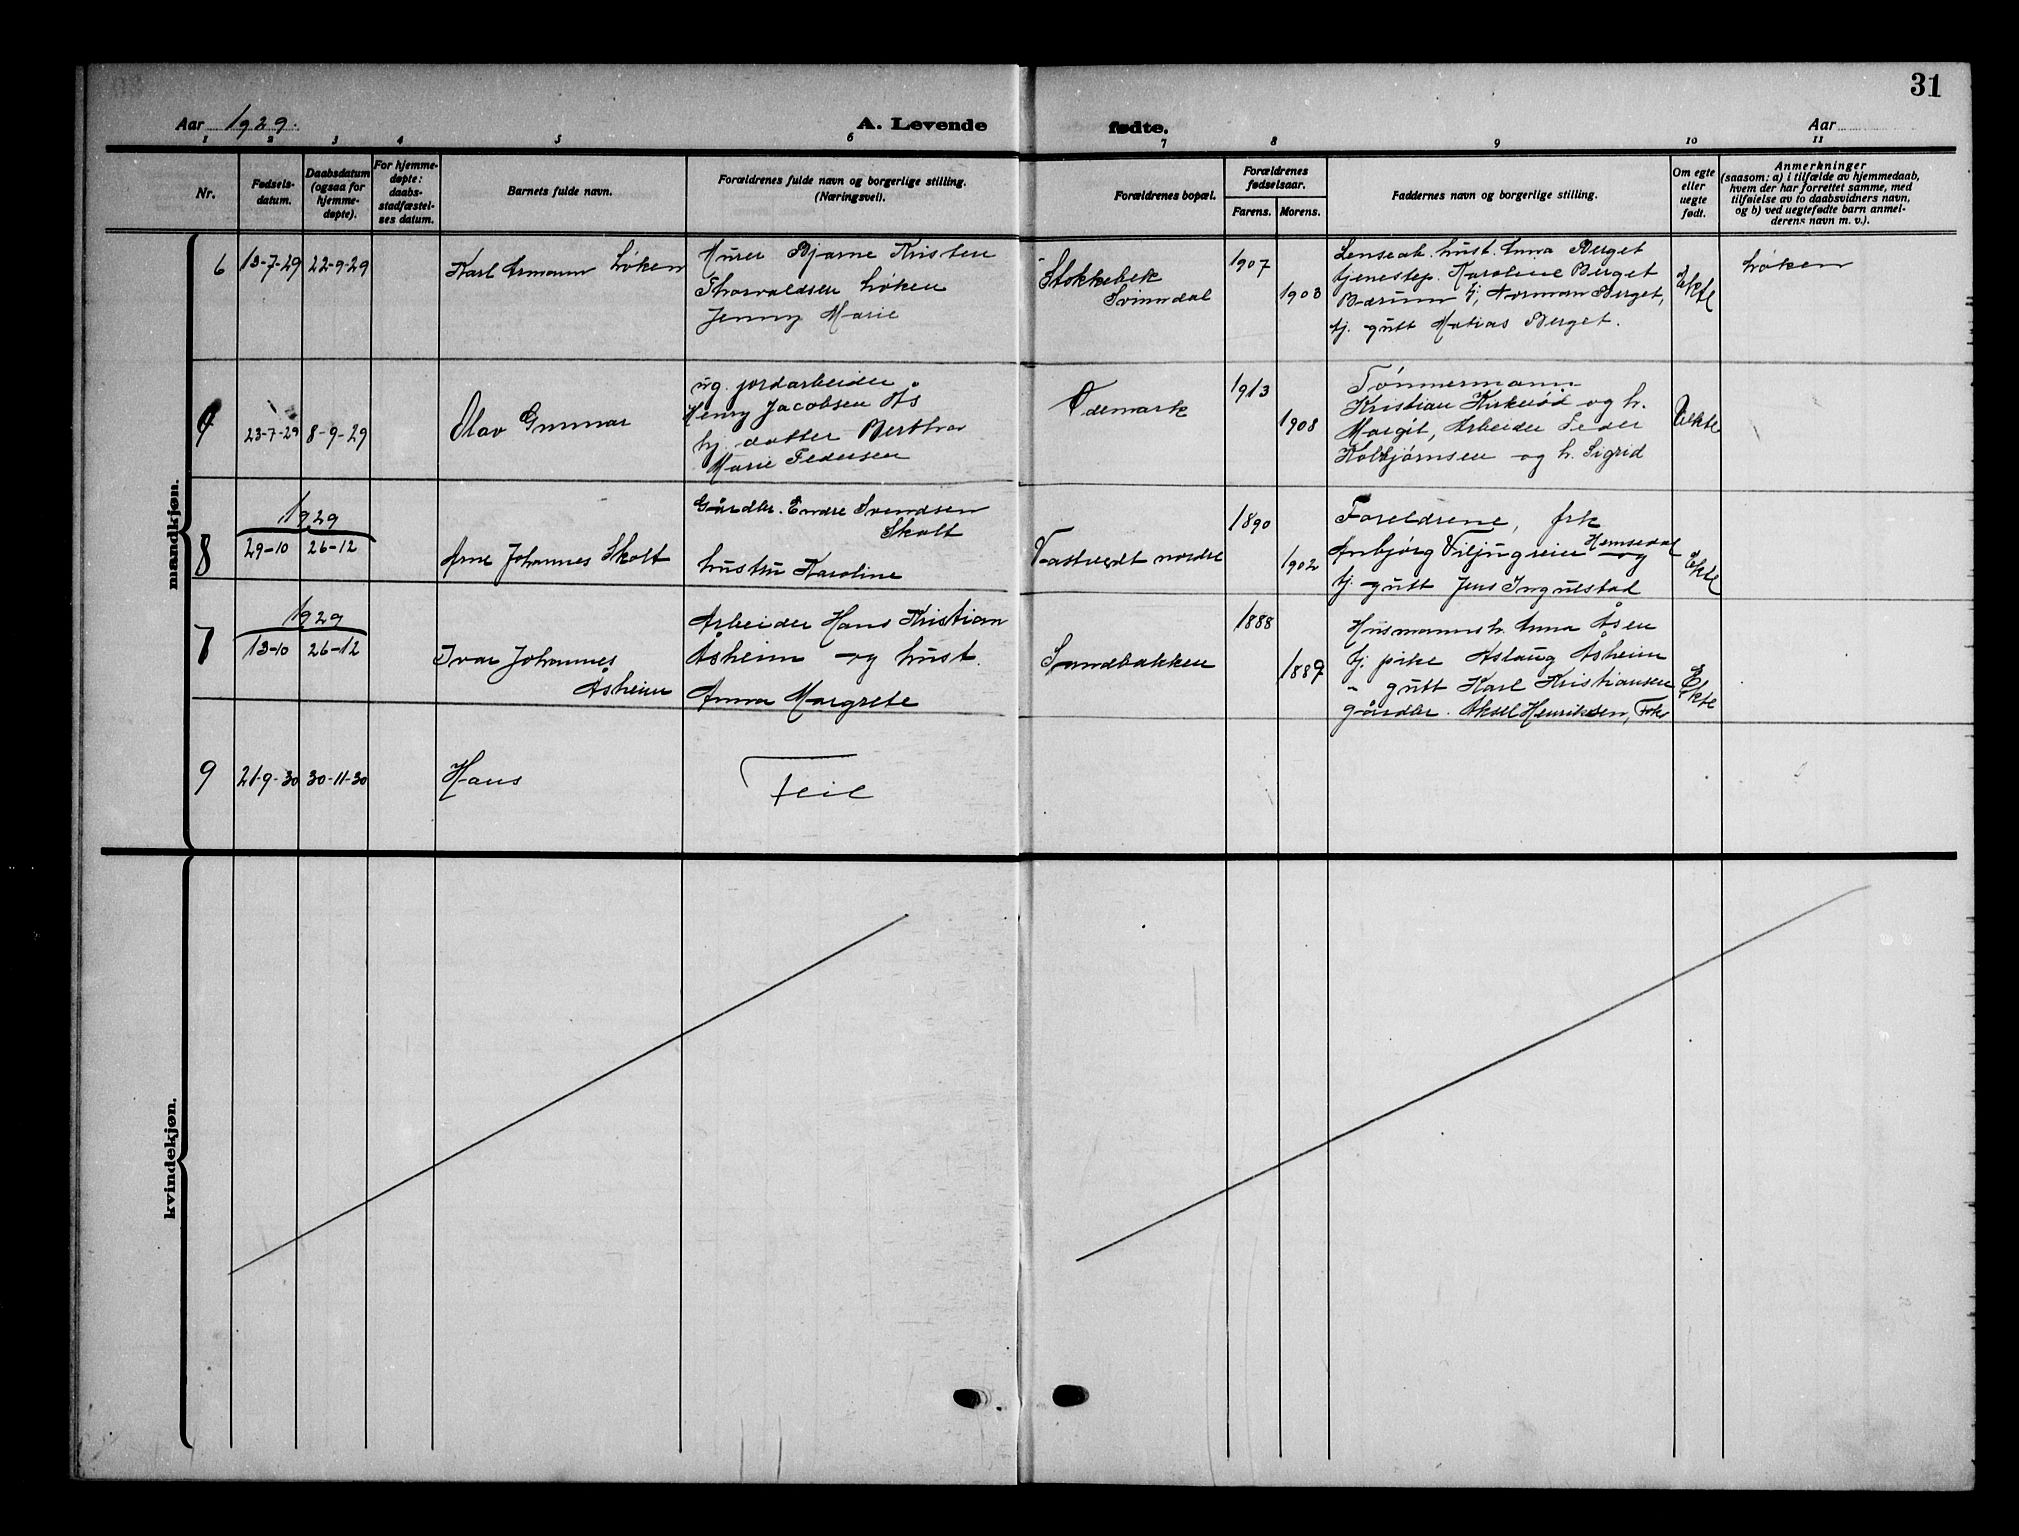 31
Aar 1929.
A. Levende
fødte.
Aar
1 2 3 4 5 6 7 8 9 10 11
Nr.
Fødsels-
datum.
Daabsdatum
(ogsaa for
hjemme-
døpte).
For hjemme-
døpte:
daabs-
stadfæstel-
ses datum.
Barnets fulde navn.
Forældrenes fulde navn og borgerlige stilling.
(Næringsvei).
Forældrenes bopæl.
Forældrenes
fødselsaar.
Farens. Morens.
Faddernes navn og borgerlige stilling.
Om egte
eller
uegte
født.
Anmerkninger
(saasom: a) i tilfælde av hjemmedaab,
hvem der har forrettet samme, med
tilføielse av to daabsvidners navn,
og b) ved uegtefødte barn anmel-
derens navn m. v.).
mandkjøn.
6 13-7-29 22-9-29
Karl Armann Løken
Murer Bjarne Kristen
Thorvaldsen Løken
Jenny Marie
Stokkebek
Svinndal
1907
1903
hust. Anna Berget
tjenestep. Karoline Berget
Bærum tj. Norman Berget,
tj. gutt Matias Berget.
Ekte
Løken
23-7-29 8-9-29
Olav Gunnar
ug. jordarbeider
Henry Jacobsen Ås
hj. datter Berthea
Marie Pedersen
Ødemark
1913
1908
Tømmermann
Kristian Kirkerød og h.
Margit, Arbeider Peder
Kolbjørnsen og h. Sigrid
Uekte
8
1929
29-10 26-12
Arne Johannes Skolt
Gårdbr. Endre Svendsen
Skolt
hustru Karoline
Vastvedt nordre
1890
1902
Foreldrene, frk
Anbjørg Viljugreien Hemsedal og
tj. gutt Jens Ingulstad
Ekte
7
1929
13-10 26-12
Ivar Johannes
Åsheim
Arbeider Hans Kristian
Åsheim og hust.
Anna Margrete
Sandbakken
1888
1889
Husmannsh. Anna Åsen
tj. pike Aslaug Åsheim
" gutt Karl Kristiansen
gårdbr. Aksel Henriksen,
Ekte
9 21-9-30 30-11-30
Hans
Feil
kvindekjøn.